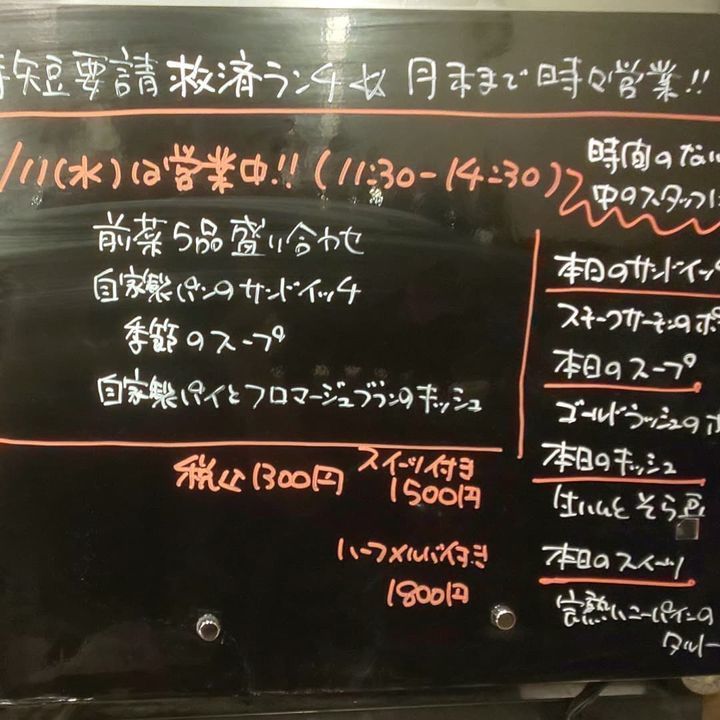 時短要請救済ランチ 月末まで時々営業!!
/11(水)は営業中!!(11:30-14:30)
時間のない
中のスタッフに
前菜5品盛り合わせ
自家製パンのサンドイッチ
季節のスープ
自家製パイとフロマージュブランのキッシュ
税込1300円
スイーツ付き
1500円
ハーフメルバ付き
1800円
本日のサンドイッチ
スモークサーモンのポ
本日のスープ
ゴールドラッシュのポ
本日のキッシュ
生ハムとそら豆
本日のスイーツ
完熟ハニーパインの
タルー